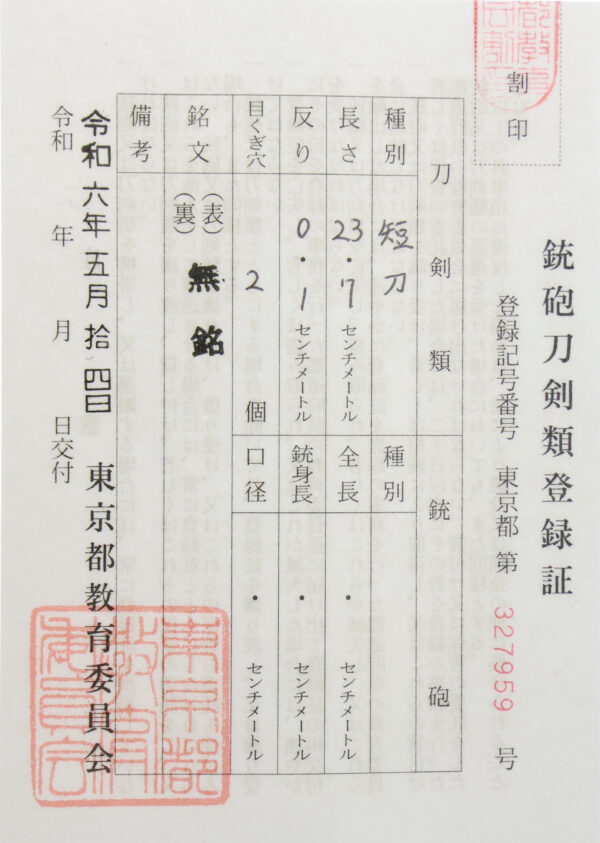 割印
銃砲刀剣類登録証
登録記号番号 東京都 第 327959 号
刀剣類 銃砲
種別 短刀 種別
長さ 23・7センチメートル 全長 ・ センチメートル
反り 0・1センチメートル 銃身長 ・ センチメートル
目くぎ穴 2 個 口径 ・ センチメートル
銘文 (表) 無銘
(裏)
備考
令和六年五月拾四日 東京都教育委員会
令和 年 月 日交付
東京都
教育
委員会